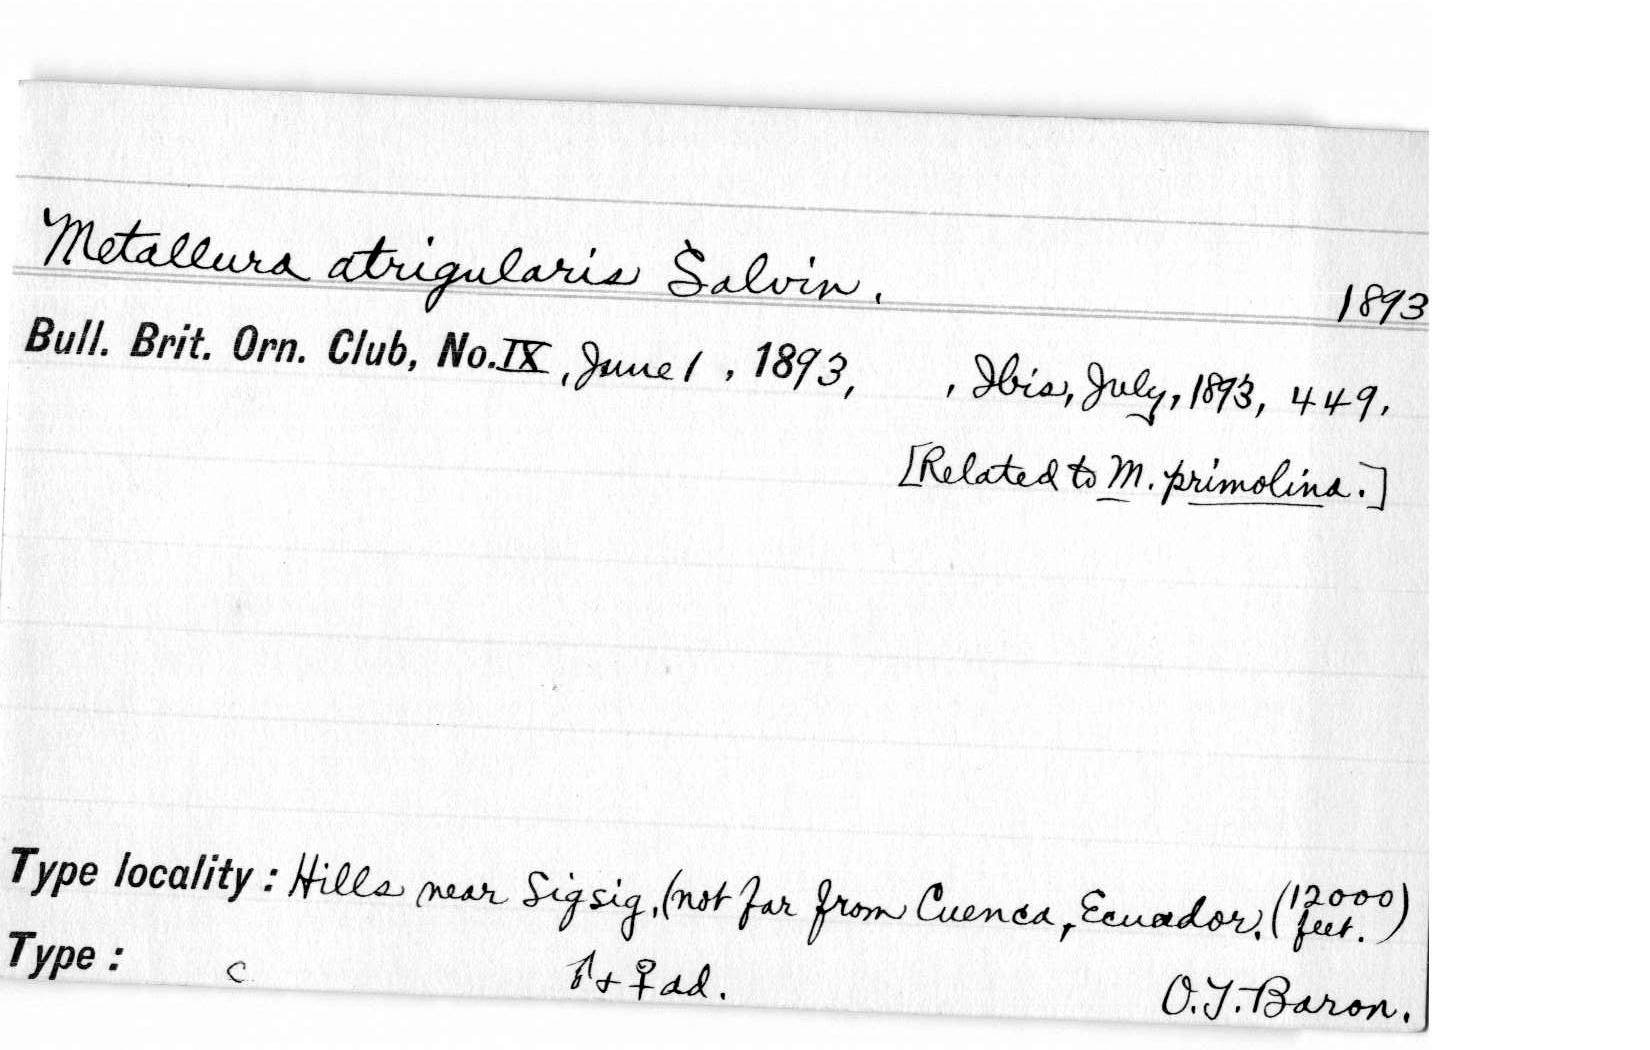 Metallura atrigularis Salvin.
1893
Bull. Brit. Orn. Club, No. IX, June 1, 1893, , Ibis, July, 1893, 449.
[Related to M. primolina.]
Type locality: Hills near Sigsig, (not far from Cuenca, Ecuador, (12000 feet.)
Type: c ♂ + ♀ ad. O.T. Baron.